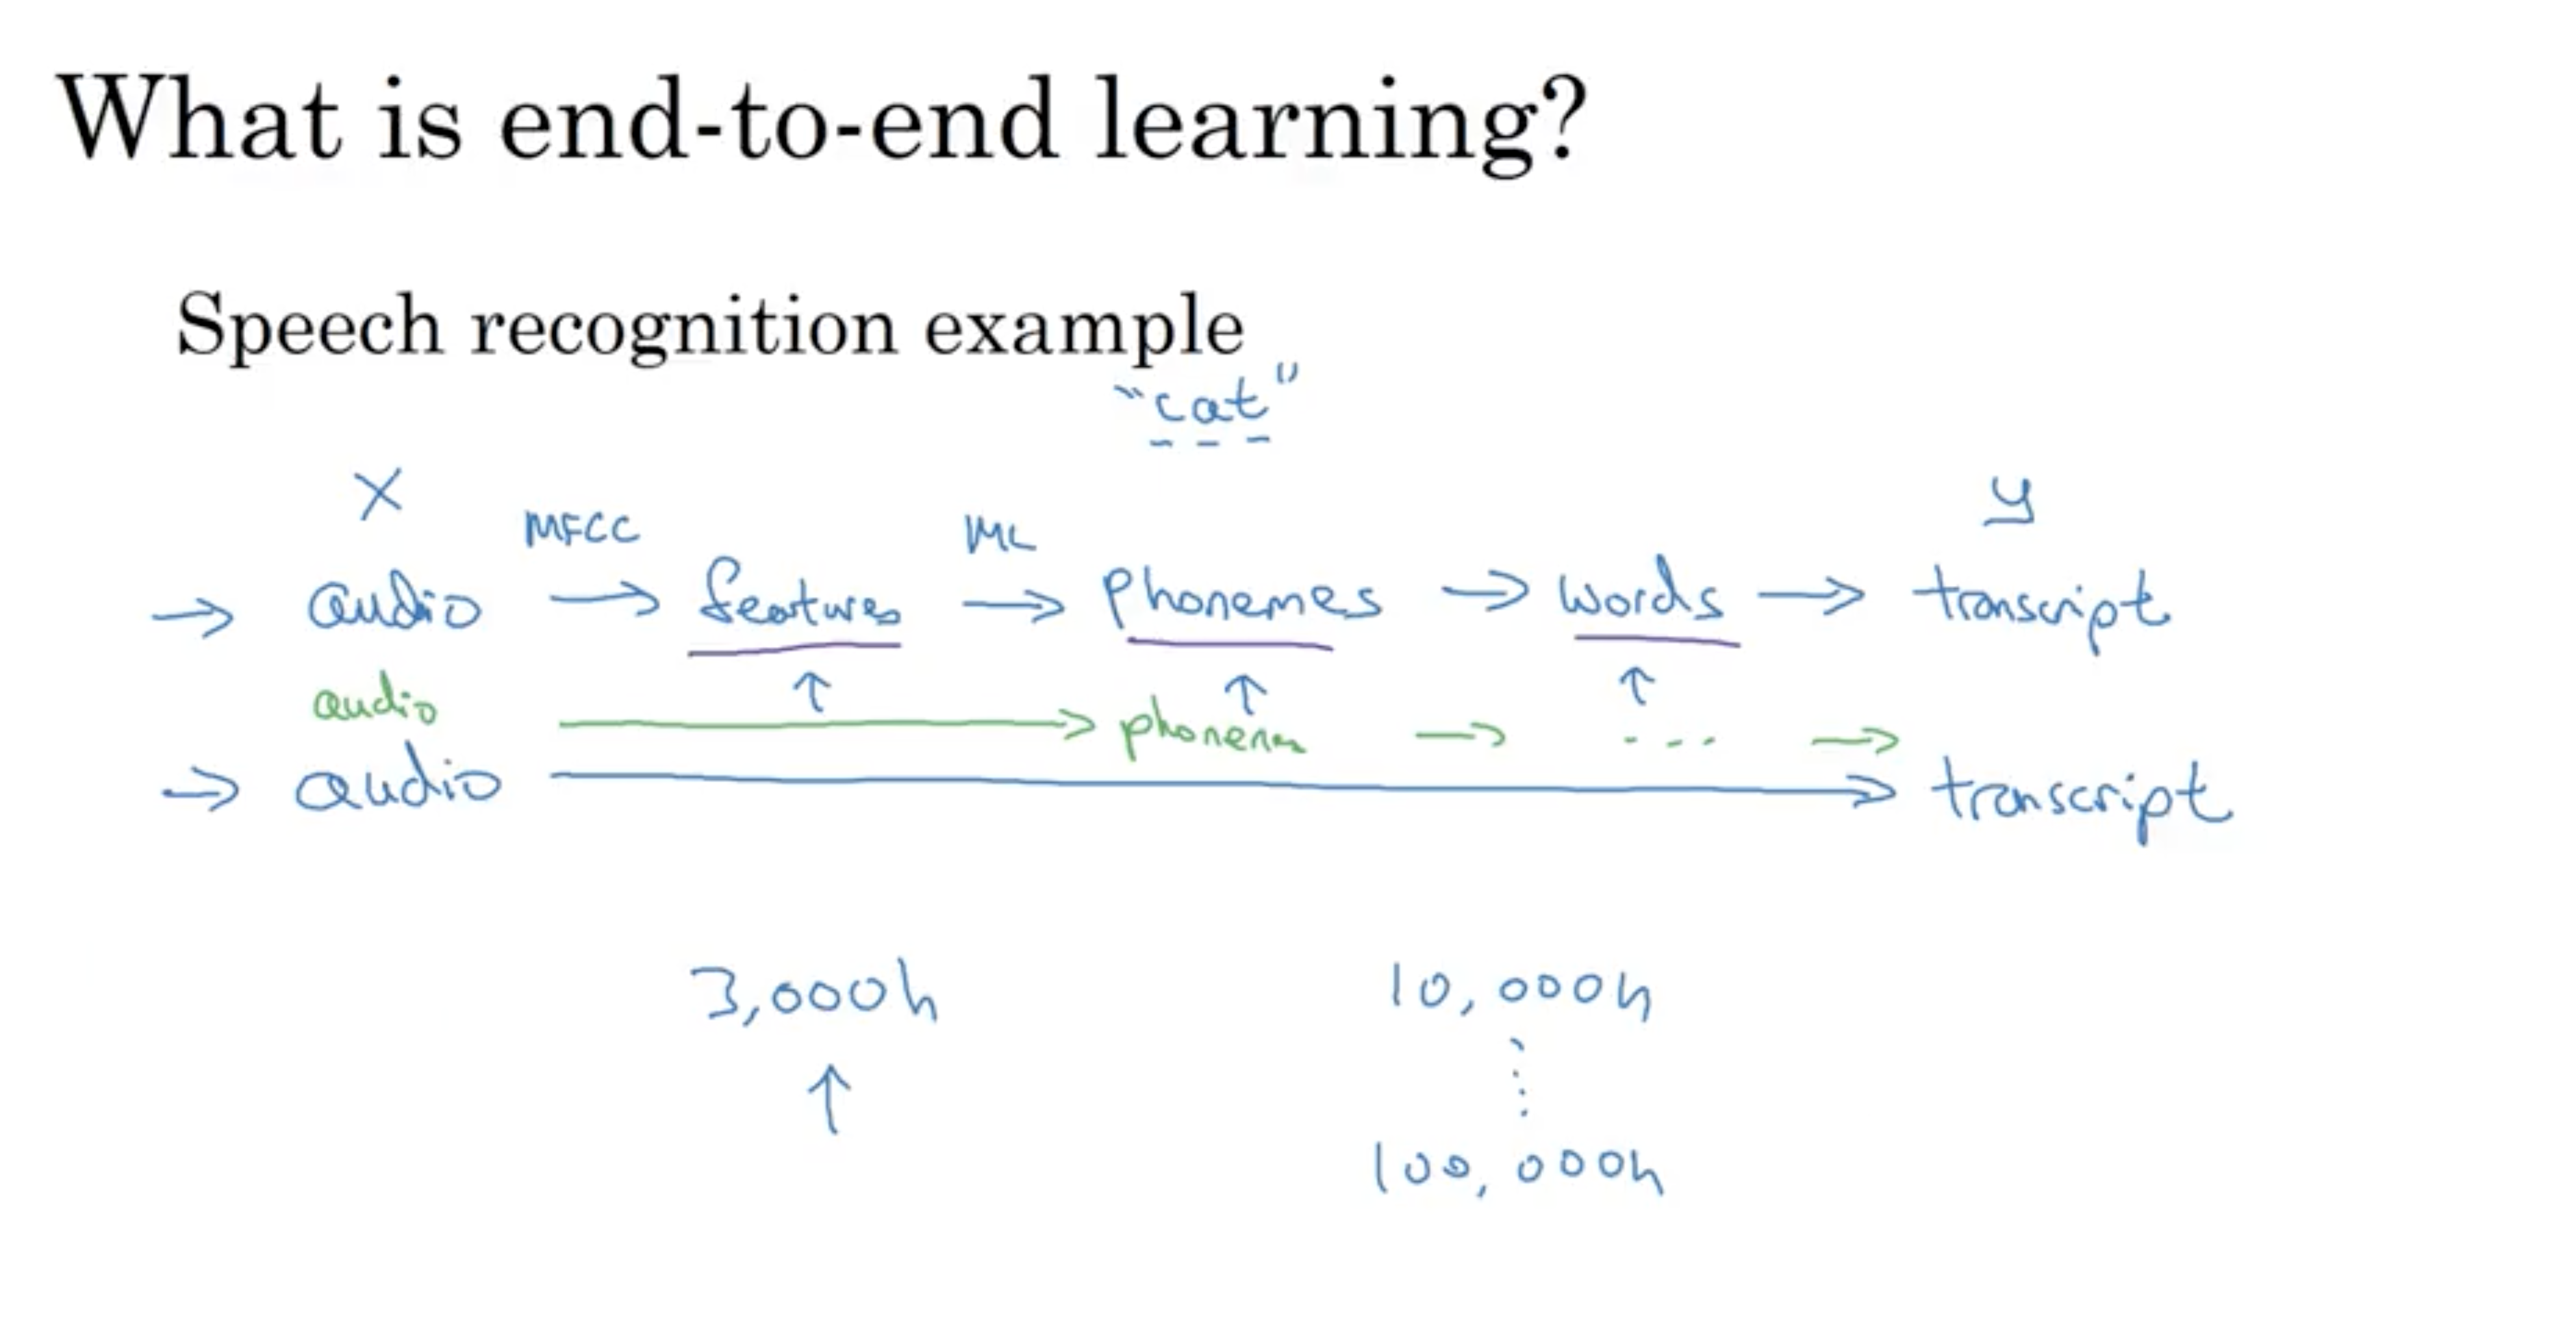 What is end-to-end learning?
Speech recognition example
"cat"
X
y
MFCC
ML
→ audio → features → phonemes → words → transcript
↑ ↑ ↑
audio → phonemes → ... →
→ audio → transcript
3,000h
10,000h
↑
100,000h